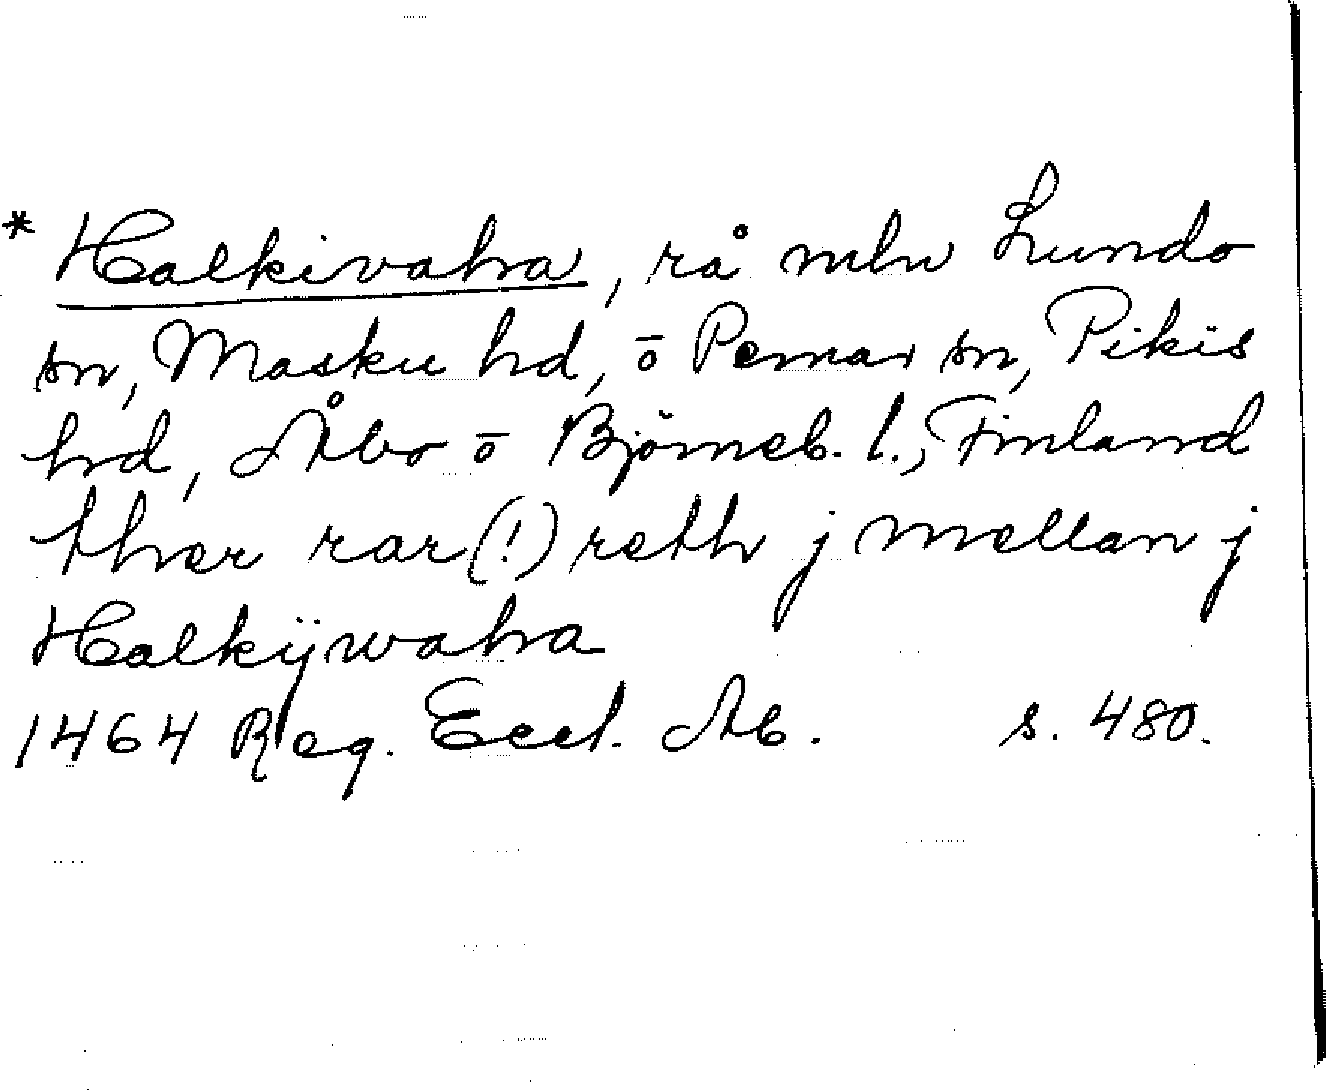 * Halkivaha, rå mln Lundo
sn, Masku hd, ō Pemar sn, Pikis
hd, Åbo ō Björneb. l., Finland
ther rar(!) reth j mellan j
Halkijwaha
1464 Reg. Eccl. Ab. s. 480.